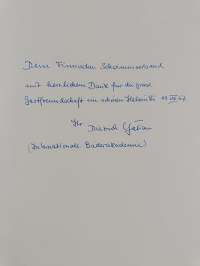 Dem Finnischen Schwimmverband
mit herzlichem Dank für die große
Gastfreundschaft im schönen Helsinki
Ihr Dietrich
(Internationale Bäderakademie)